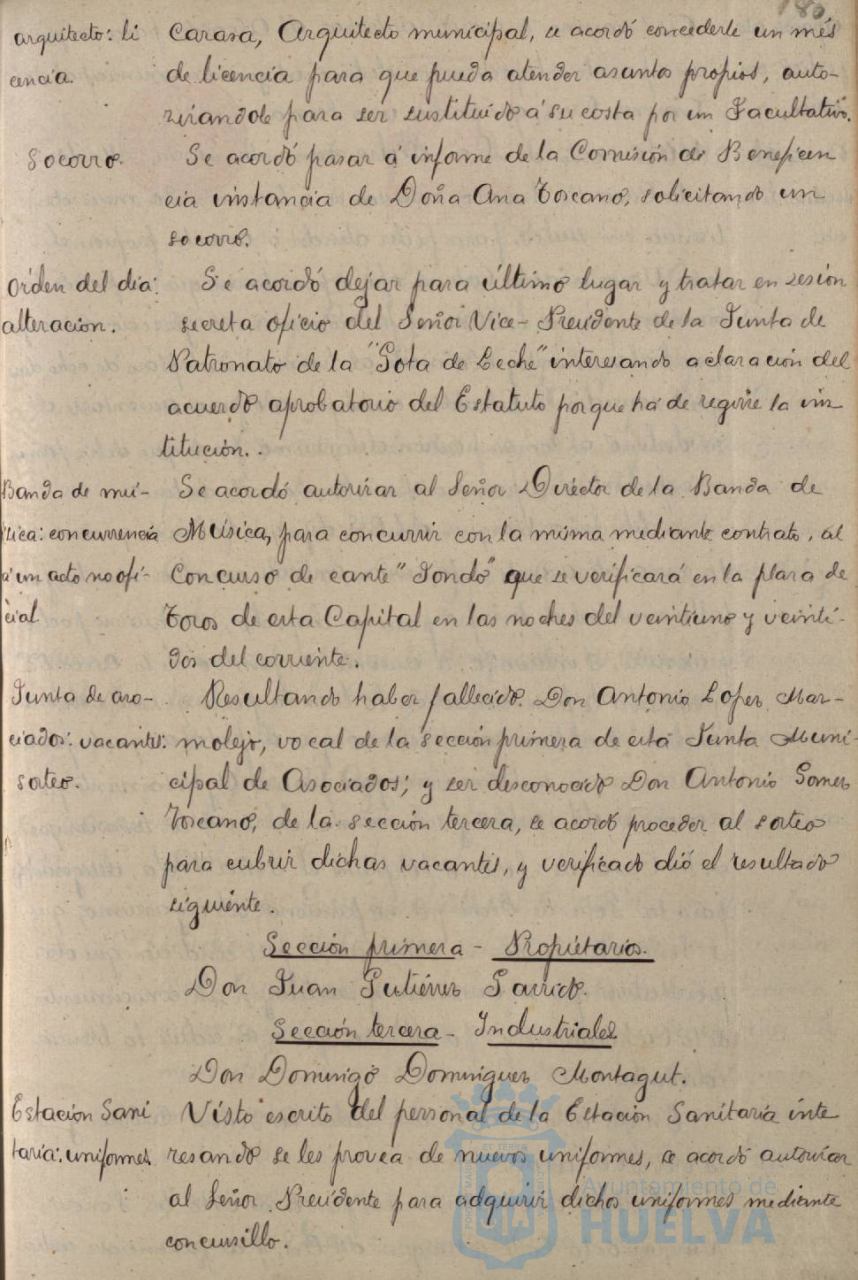 185
arquitecto: li
cencia.
Carasa, Arquitecto municipal, se acordó concederle un més
de licencia para que pueda atender asuntos propios, auto-
rizandole para ser sustituido á su costa por un Facultativo.
Socorro.
Se acordó pasar á informe de la Comisión de Beneficen
cia instancia de Doña Ana Toscano, solicitando un
socorro.
Orden del dia:
alteracion.
Se acordó dejar para último lugar y tratar en sesión
secreta oficio del Señor Vice-Presidente de la Junta de
Patronato de la "Gota de Leche" interesando aclaración del
acuerdo aprobatorio del Estatuto porque há de regirse la ins
titución..
Banda de mú-
sica: concurrencia
á un acto no ofi-
cial
Se acordó autorizar al Señor Director de la Banda de
Música, para concurrir con la misma mediante contrato, al
Concurso de cante "Jondo" que se verificará en la plaza de
Toros de esta Capital en las noches del veintiuno y veinti-
dos del corriente.
Junta de aso-
ciados: vacantes:
sorteo.
Resultando haber fallecido Don Antonio Lopez Mar-
molejo, vocal de la sección primera de esta Junta Muni-
cipal de Asociados; y ser desconocido Don Antonio Gomez
Toscano, de la sección tercera, se acordó proceder al sorteo
para cubrir dichas vacantes, y verificado dió el resultado
siguiente.
Sección primera - Propietarios.
Don Juan Gutiérrez Garrido.
Sección tercera - Industriales
Don Domingo Dominguez Montagut.
Estación Sani
taria: uniformes.
Visto escrito del personal de la Estación Sanitaria inte
resando se les provea de nuevos uniformes, se acordó autorizar
al Señor Presidente para adquirir dichos uniformes mediante
concursillo.
Ayuntamiento de
HUELVA